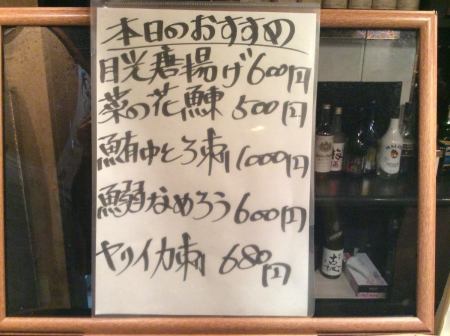 本日のおすすめ
目光唐揚げ600円
菜の花鰊500円
鮪中とろ刺1000円
鰯なめろう600円
ヤリイカ刺680円